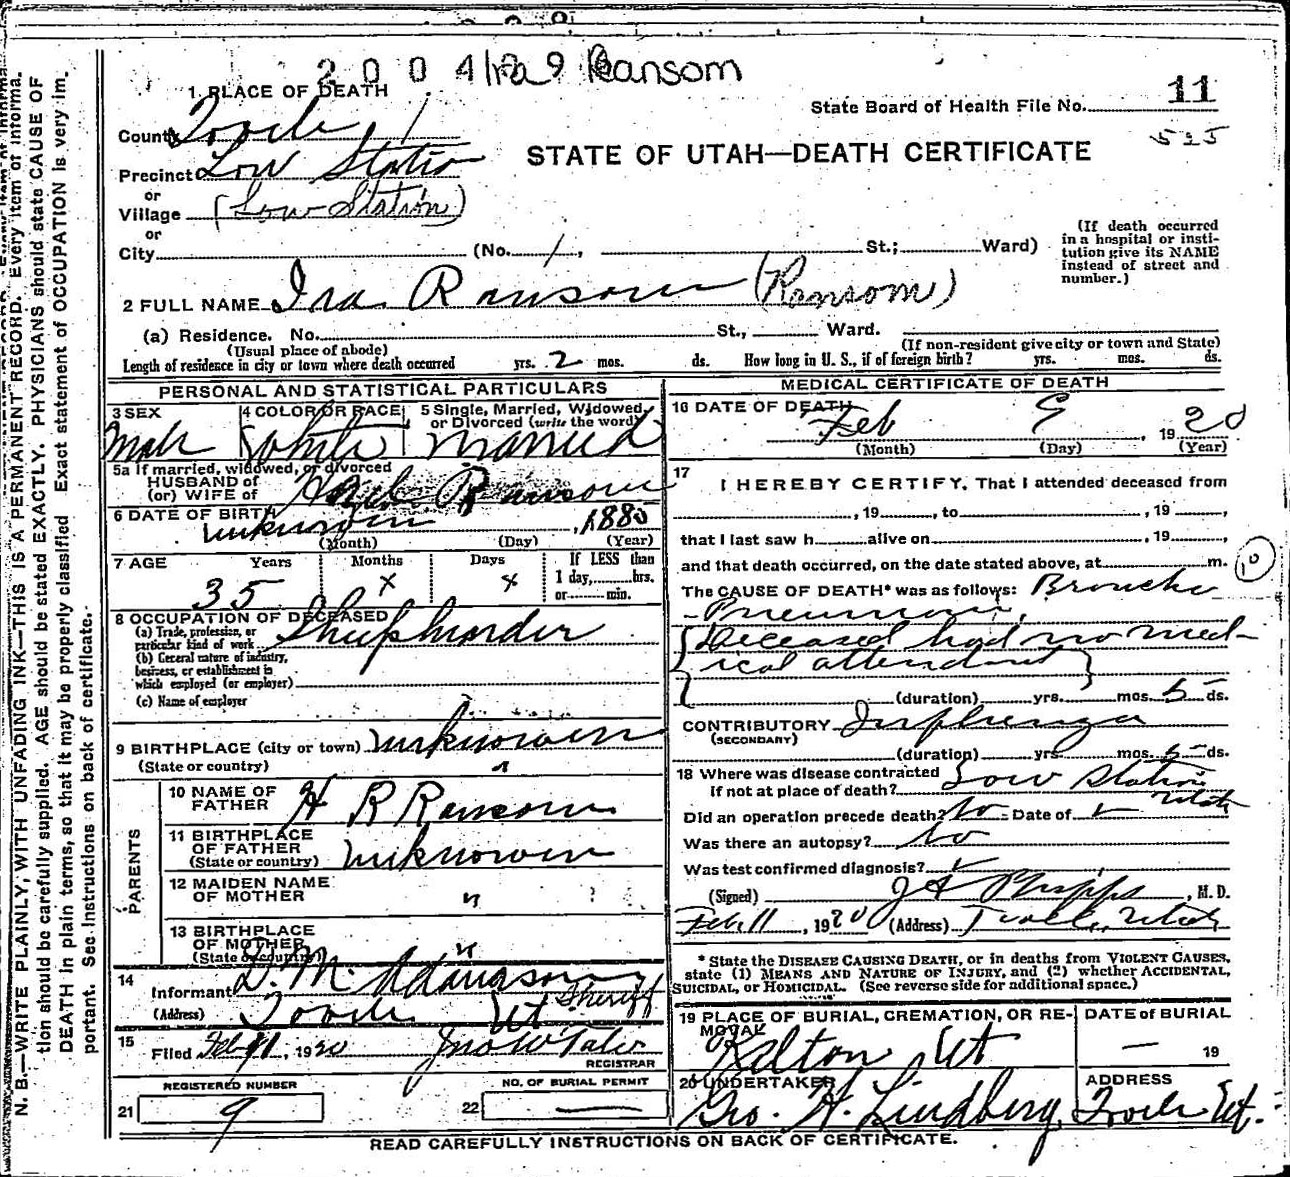 2 0 0 4 Ira 9 Ransom
1 PLACE OF DEATH
State Board of Health File No. 11
525
County Tooele 1
STATE OF UTAH—DEATH CERTIFICATE
Precinct Low Station
or
Village (Low Station)
or
City (No. 1, St.; Ward)
(If death occurred in a hospital or insti-
tution give its NAME
instead of street and
number.)
2 FULL NAME Ira Ransom (Ransom)
(a) Residence. No. St., Ward.
(Usual place of abode) (If non-resident give city or town and State)
Length of residence in city or town where death occurred yrs. 2 mos. ds. How long in U. S., if of foreign birth? yrs. mos. ds.
PERSONAL AND STATISTICAL PARTICULARS
3 SEX 4 COLOR OR RACE 5 Single, Married, Widowed,
or Divorced (write the word)
Male White Married
5a If married, widowed, or divorced
HUSBAND of
(or) WIFE of Ransom
6 DATE OF BIRTH unknown, 1885
(Month) (Day) (Year)
7 AGE Years Months Days If LESS than
1 day, hrs.
or min.
35 x x
8 OCCUPATION OF DECEASED
(a) Trade, profession, or
particular kind of work Sheepherder
(b) General nature of industry,
business, or establishment in
which employed (or employer)
(c) Name of employer
9 BIRTHPLACE (city or town) unknown
(State or country) "
PARENTS
10 NAME OF
FATHER H R Ransom
11 BIRTHPLACE
OF FATHER
(State or country) unknown
12 MAIDEN NAME
OF MOTHER "
13 BIRTHPLACE
OF MOTHER
(State or country) "
14
Informant D. M. Adamson
Sheriff
(Address) Tooele Ut
15
Filed Feb 11, 1920 Jno W Tate
REGISTRAR
REGISTERED NUMBER NO. OF BURIAL PERMIT
21 9 22 —
MEDICAL CERTIFICATE OF DEATH
16 DATE OF DEATH
Feb 9, 1920
(Month) (Day) (Year)
17
I HEREBY CERTIFY, That I attended deceased from
, 19 , to , 19 ,
that I last saw h alive on , 19 ,
and that death occurred, on the date stated above, at m. 10
The CAUSE OF DEATH* was as follows: Broncho
- Pneumonia,
(Deceased had no med-
ical attendant)
(duration) yrs. mos. 5 ds.
CONTRIBUTORY Influenza
(SECONDARY)
(duration) yrs. mos. 5 ds.
18 Where was disease contracted
if not at place of death? Low Station
Utah
Did an operation precede death? No Date of
Was there an autopsy? No
Was test confirmed diagnosis?
(Signed) J A Phipps, M. D.
Feb. 11, 1920 (Address) Tooele, Utah
* State the DISEASE CAUSING DEATH, or in deaths from VIOLENT CAUSES,
state (1) MEANS AND NATURE OF INJURY, and (2) whether ACCIDENTAL,
SUICIDAL, or HOMICIDAL. (See reverse side for additional space.)
19 PLACE OF BURIAL, CREMATION, OR RE-
MOVAL
Kelton Ut
DATE of BURIAL
— 19
20 UNDERTAKER
Geo. H. Lindberg,
ADDRESS
Tooele Ut.
READ CAREFULLY INSTRUCTIONS ON BACK OF CERTIFICATE.
N. B.—WRITE PLAINLY, WITH UNFADING INK—THIS IS A PERMANENT RECORD. Every item of informa-
tion should be carefully supplied. AGE should be stated EXACTLY. PHYSICIANS should state CAUSE OF
DEATH in plain terms, so that it may be properly classified Exact statement of OCCUPATION is very im-
portant. See instructions on back of certificate.